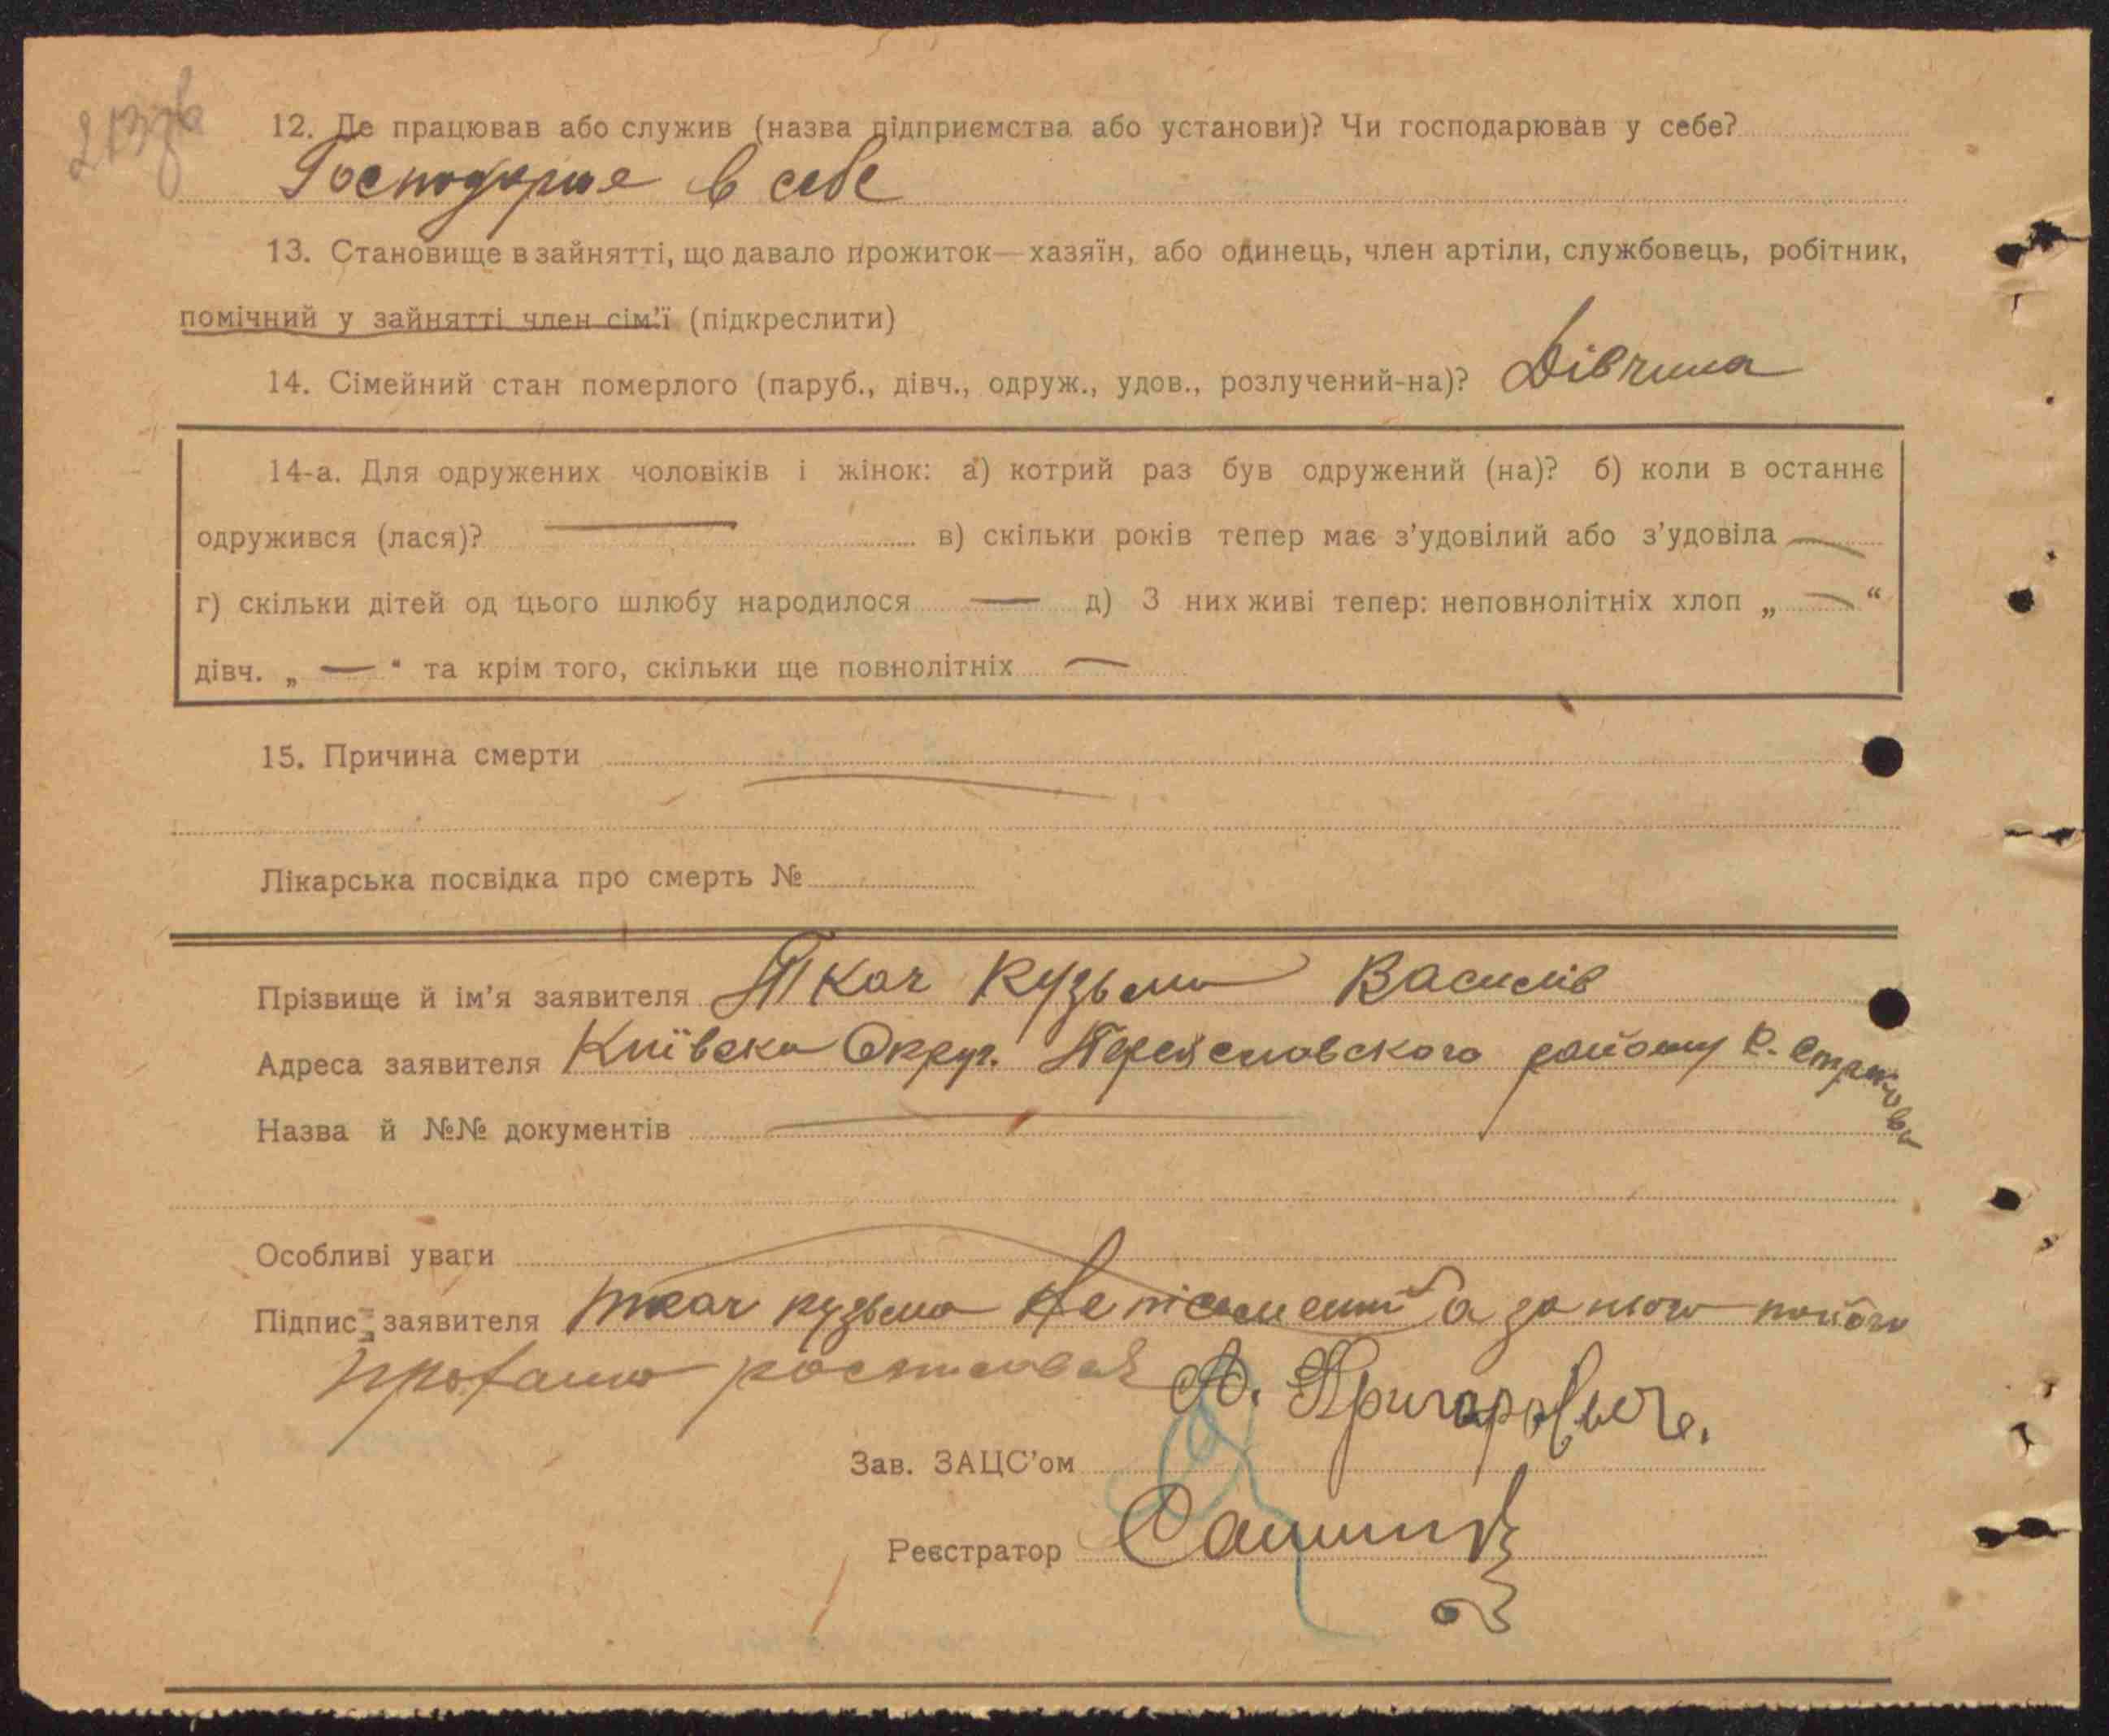 213зв
12. Де працював або служив (назва підприємства або установи)? Чи господарював у себе?
Господарює в себе
13. Становище в зайнятті, що давало прожиток — хазяїн, або одинець, член артіли, службовець, робітник,
помічний у зайнятті член сім'ї (підкреслити)
14. Сімейний стан померлого (паруб., дівч., одруж., удов., розлучений-на)? Дівчина
14-а. Для одружених чоловіків і жінок: а) котрий раз був одружений (на)? б) коли в останнє
одружився (лася)? — в) скільки років тепер має з'удовілий або з'удовіла —
г) скільки дітей од цього шлюбу народилося — д) З них живі тепер: неповнолітніх хлоп „ — “
дівч. „ — “ та крім того, скільки ще повнолітніх —
15. Причина смерти —
Лікарська посвідка про смерть №
Прізвище й ім'я заявителя Ткач Кузьма Василів
Адреса заявителя Київска Округ. Переяславского району с. Строкова
Назва й №№ документів —
Особливі уваги —
Підпис заявителя Ткач кузьма Неписьменний а за нього по його
проханю росписався А. Григорович.
Зав. ЗАЦС'ом
Реєстратор